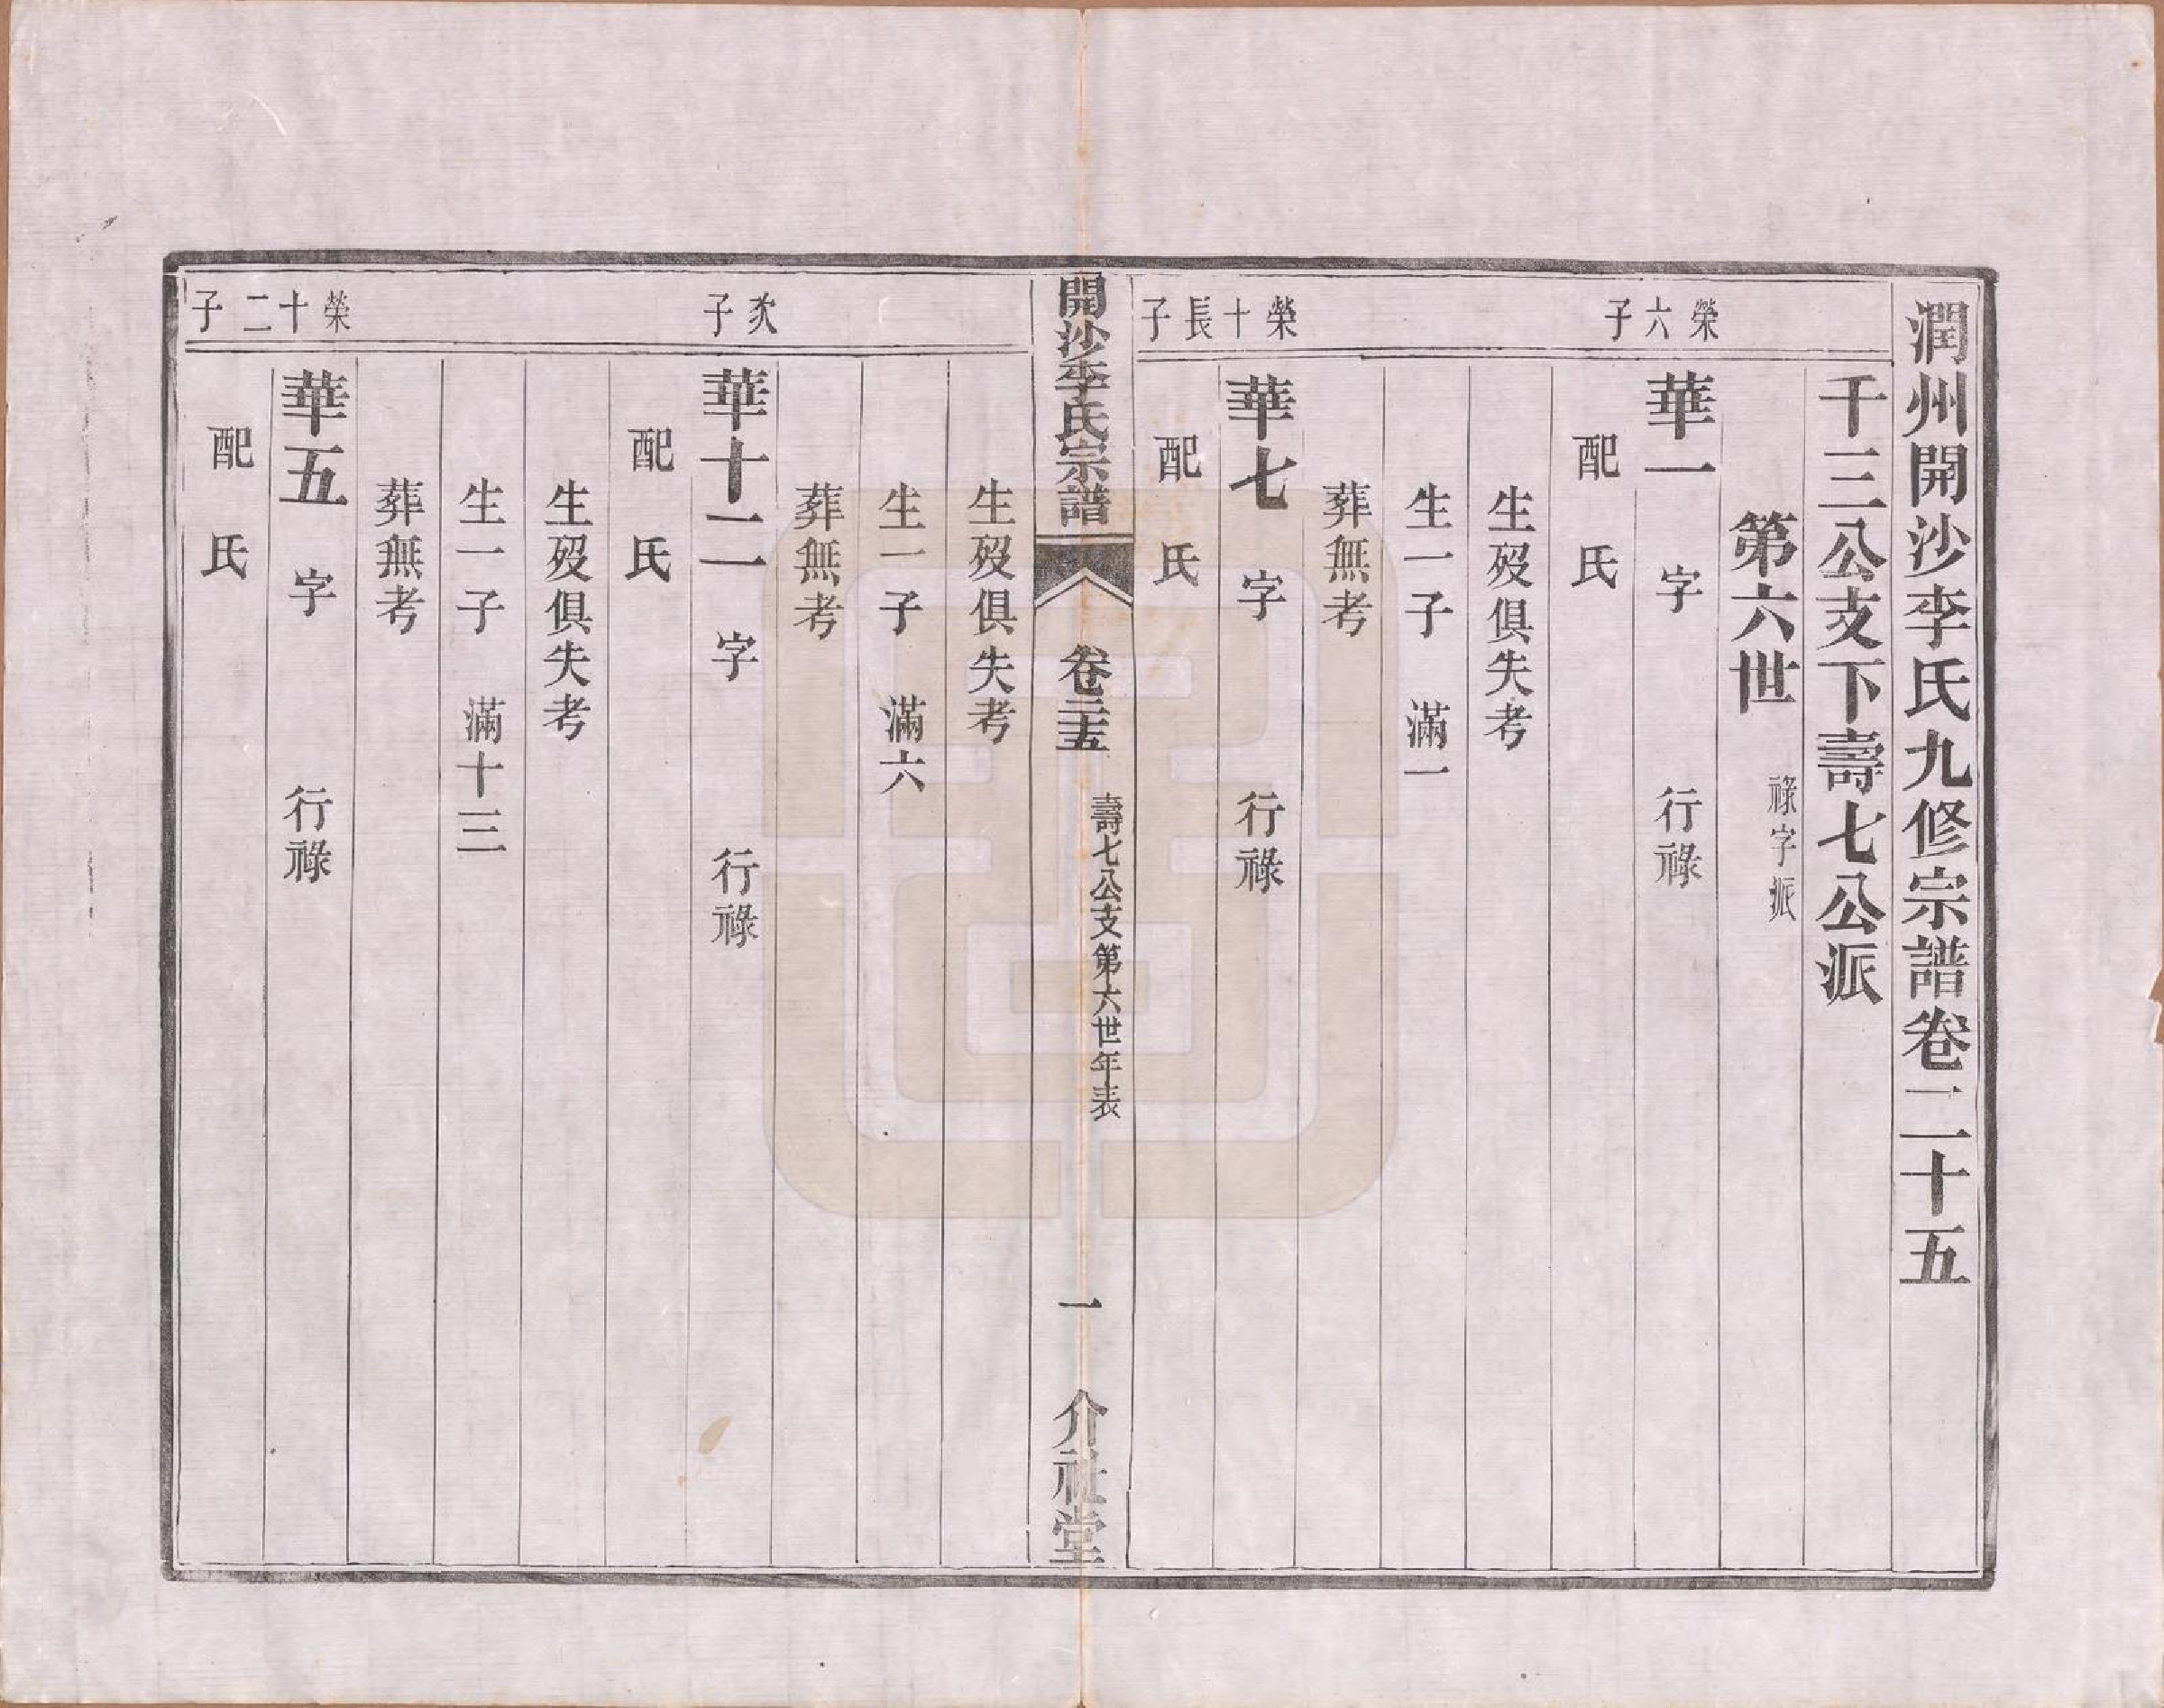 潤州開沙李氏九修宗譜卷二十五
千三公支下壽七公派
第六世 祿字派
榮六子
華一 字 行祿
配 氏
生歿俱失考
生一子 滿一
葬無考
榮十長子
華七 字 行祿
配 氏
開沙李氏宗譜 卷二十五 壽七公支第六世年表 一 介祉堂
生歿俱失考
生一子 滿六
葬無考
次子
華十二 字 行祿
配 氏
生歿俱失考
生一子 滿十三
葬無考
榮十二子
華五 字 行祿
配 氏